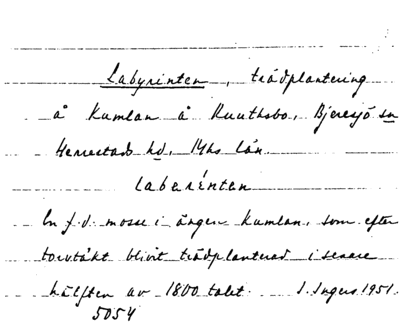 Labyrinten, trädplantering
å Kumlan å Ruuthsbo, Bjeresjö sn
Herrestads hd, Mhs län.
laberénten
En f.d. mosse i ängen Kumlan, som efter
torvtäkt blivit trädplanterad i senare
hälften av 1800 talet. I. Ingers 1951.
5054